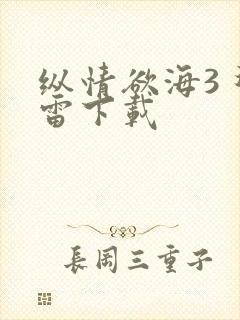 纵情欲海3
雷下载
長岡三重子